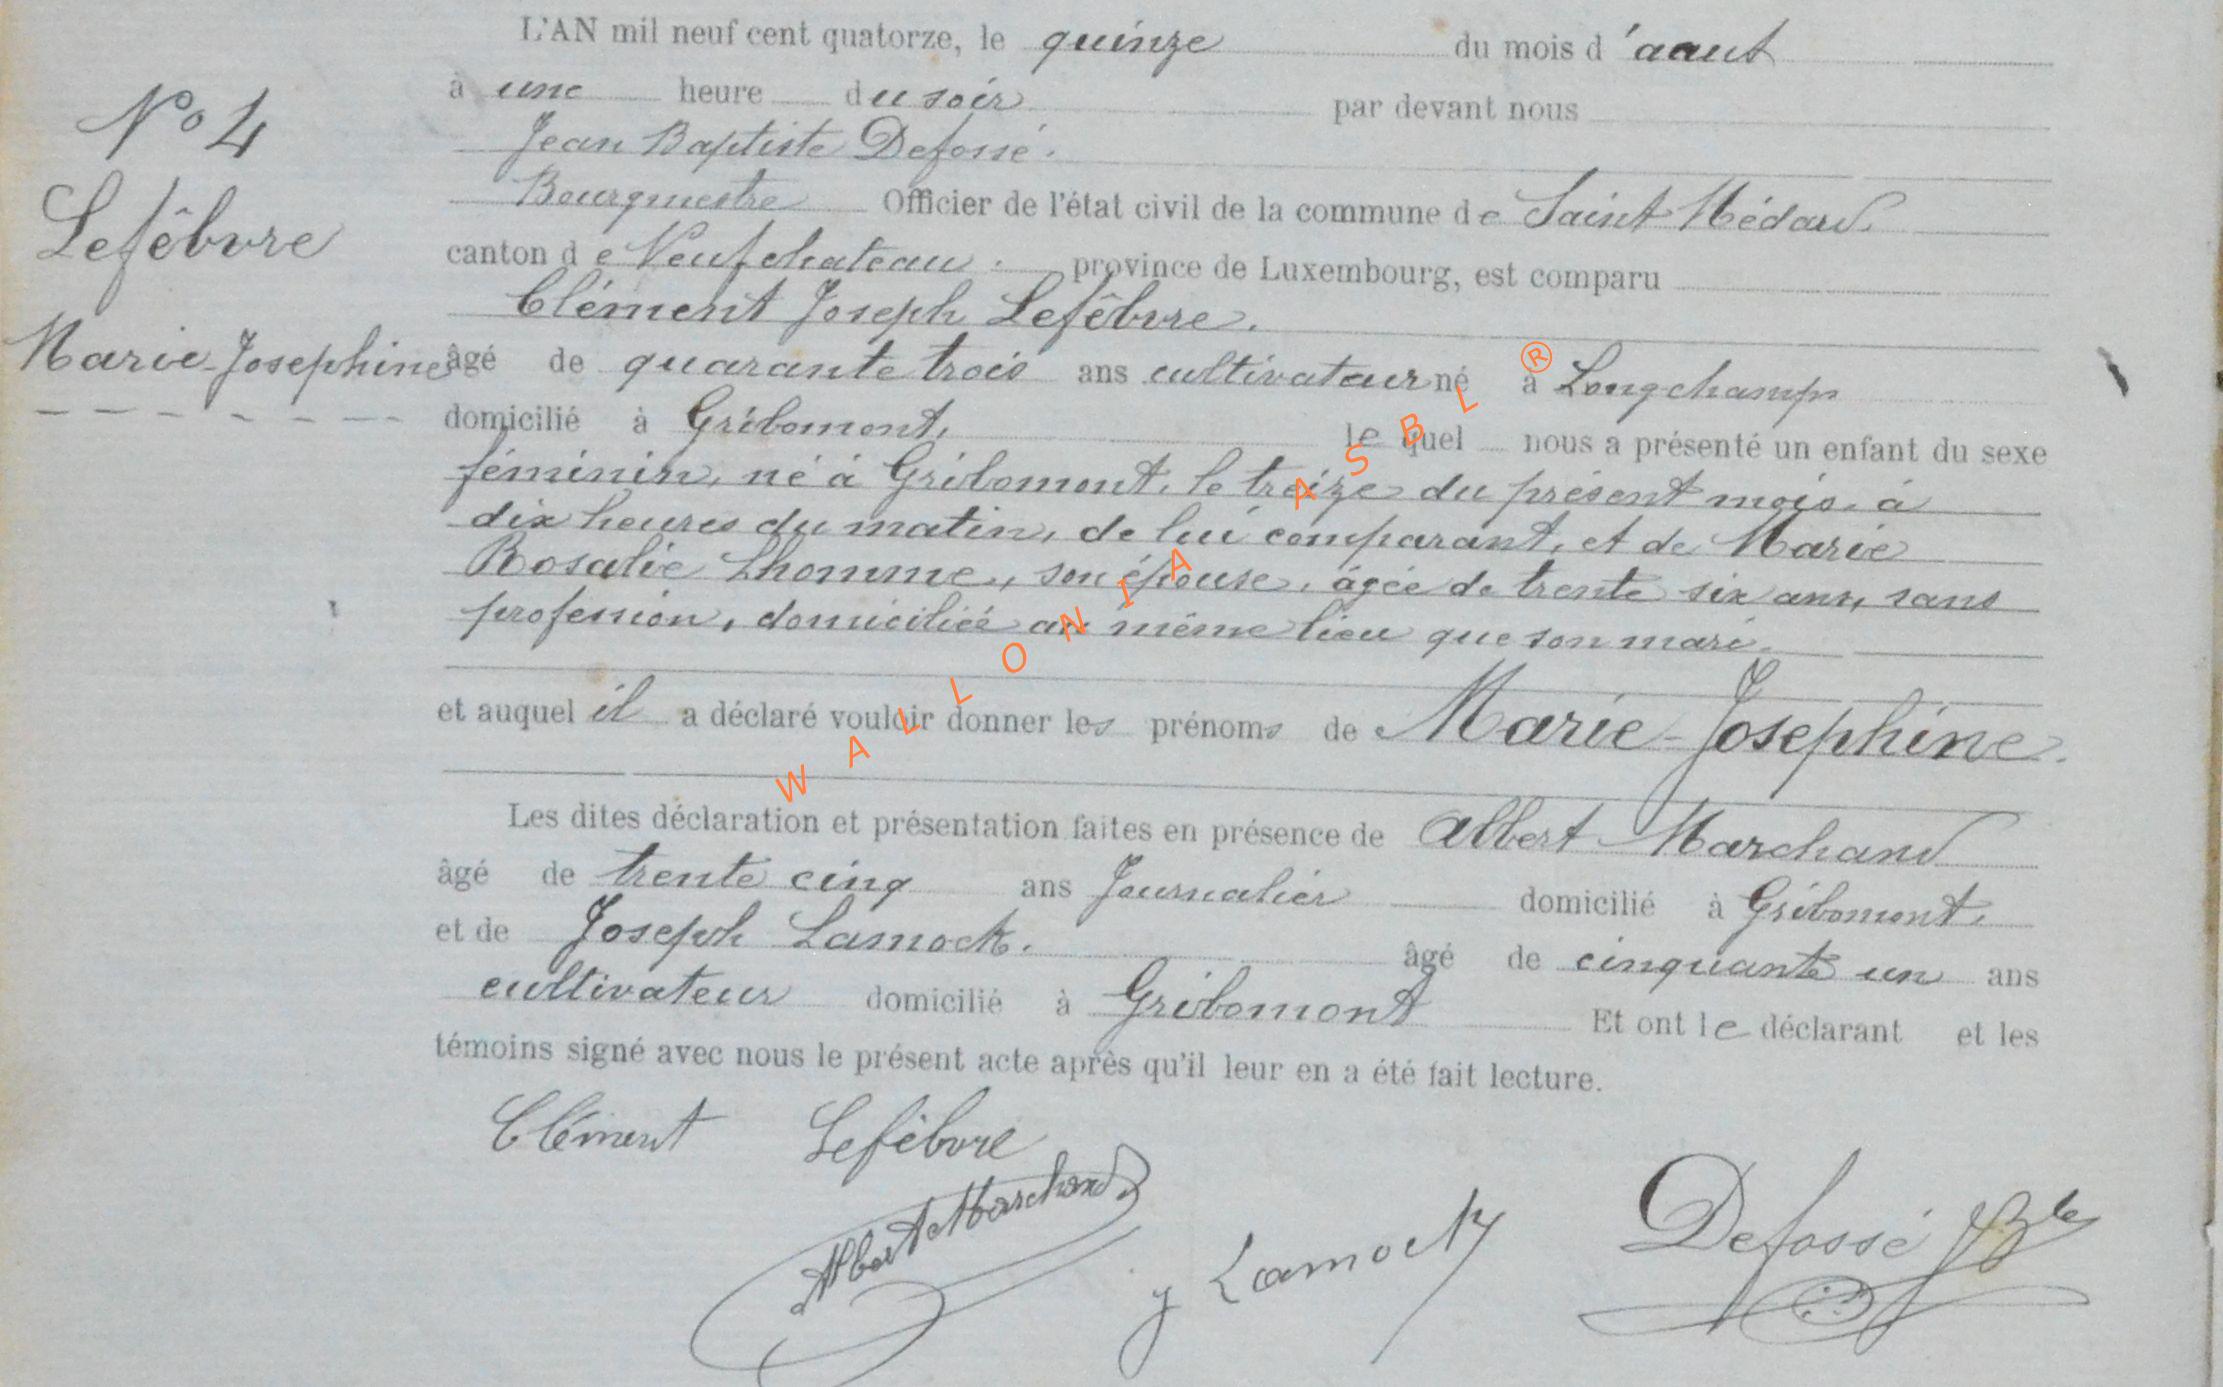 L'AN mil neuf cent quatorze, le quinze du mois d'aout
à une heure du soir par devant nous
Jean Baptiste Defossé.
Bourgmestre Officier de l'état civil de la commune de Saint Médard.
canton de Neufchateau. province de Luxembourg, est comparu
Clément Joseph Lefêbvre.
âgé de quarante trois ans cultivateur né à Longchamps
domicilié à Gribomont, lequel nous a présenté un enfant du sexe
féminin, né à Gribomont, le treize du présent mois, à
dix heures du matin, de lui comparant, et de Marie
Rosalie Lhomme, son épouse, âgée de trente six ans, sans
profession, domiciliée au même lieu que son mari.
et auquel il a déclaré vouloir donner les prénoms de Marie-Josephine.
Les dites déclaration et présentation faites en présence de Albert Marchand
âgé de trente cinq ans Journalier domicilié à Gribomont.
et de Joseph Lamock. âgé de cinquante un ans
cultivateur domicilié à Gribomont Et ont le déclarant et les
témoins signé avec nous le présent acte après qu'il leur en a été fait lecture.
Clément Lefèbvre
Albert Marchand
J Lamock
Defossé JBte
No 4
Lefêbvre
Marie-Josephine
WALLONIA ASBL ®